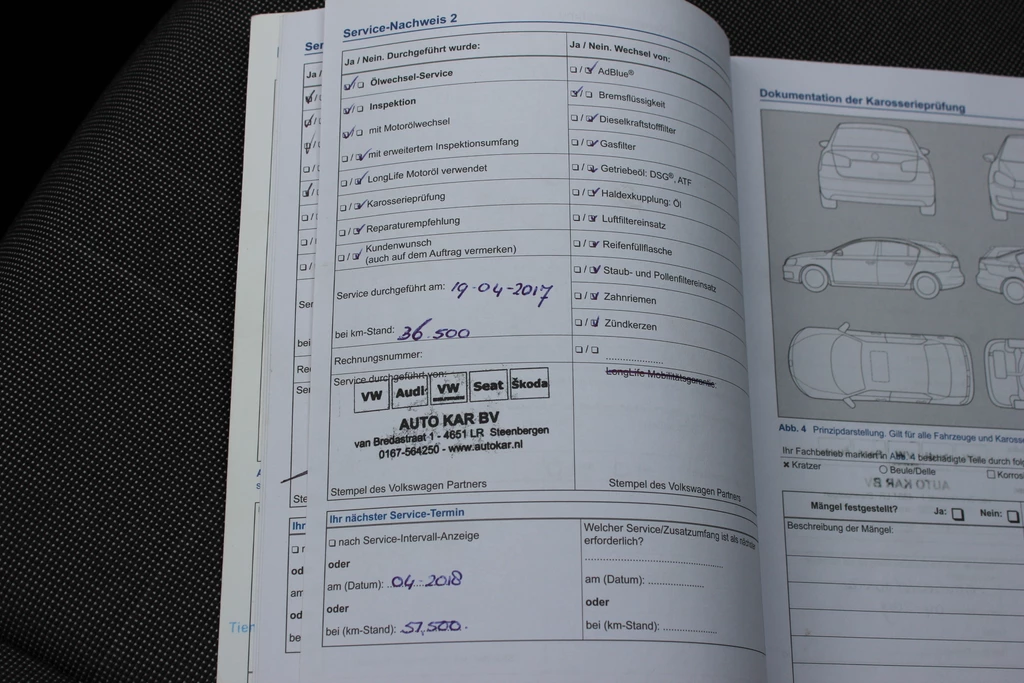 Service-Nachweis 2
Ja / Nein. Durchgeführt wurde:
Ölwechsel-Service
Inspektion
mit Motorölwechsel
mit erweitertem Inspektionsumfang
LongLife Motoröl verwendet
Karosserieprüfung
Reparaturempfehlung
Kundenwunsch
(auch auf dem Auftrag vermerken)
Service durchgeführt am: 19-04-2017
bei km-Stand: 36.500
Rechnungsnummer:
Service durchgeführt von:
VW Audi VW Seat Škoda
AUTO KAR BV
van Bredastraat 1 - 4651 LR Steenbergen
0167-564250 - www.autokar.nl
Stempel des Volkswagen Partners
Ja / Nein. Wechsel von:
AdBlue®
Bremsflüssigkeit
Dieselkraftstofffilter
Gasfilter
Getriebeöl: DSG®, ATF
Haldexkupplung: Öl
Luftfiltereinsatz
Reifenfüllflasche
Staub- und Pollenfiltereinsatz
Zahnriemen
Zündkerzen
LongLife Mobilitätsgarantie
Stempel des Volkswagen Partners
Ihr nächster Service-Termin
nach Service-Intervall-Anzeige
oder
am (Datum): 04-2018
oder
bei (km-Stand): 51.500
Welcher Service/Zusatzumfang ist als nächster
erforderlich?
am (Datum):
oder
bei (km-Stand):
Dokumentation der Karosserieprüfung
Abb. 4 Prinzipdarstellung. Gilt für alle Fahrzeuge und
Ihr Fachbetrieb markiert in Abb. 4 beschädigte Teile durch
x Kratzer
Beule/Delle
AUTO KAR BV
Mängel festgestellt? Ja: Nein:
Beschreibung der Mängel: